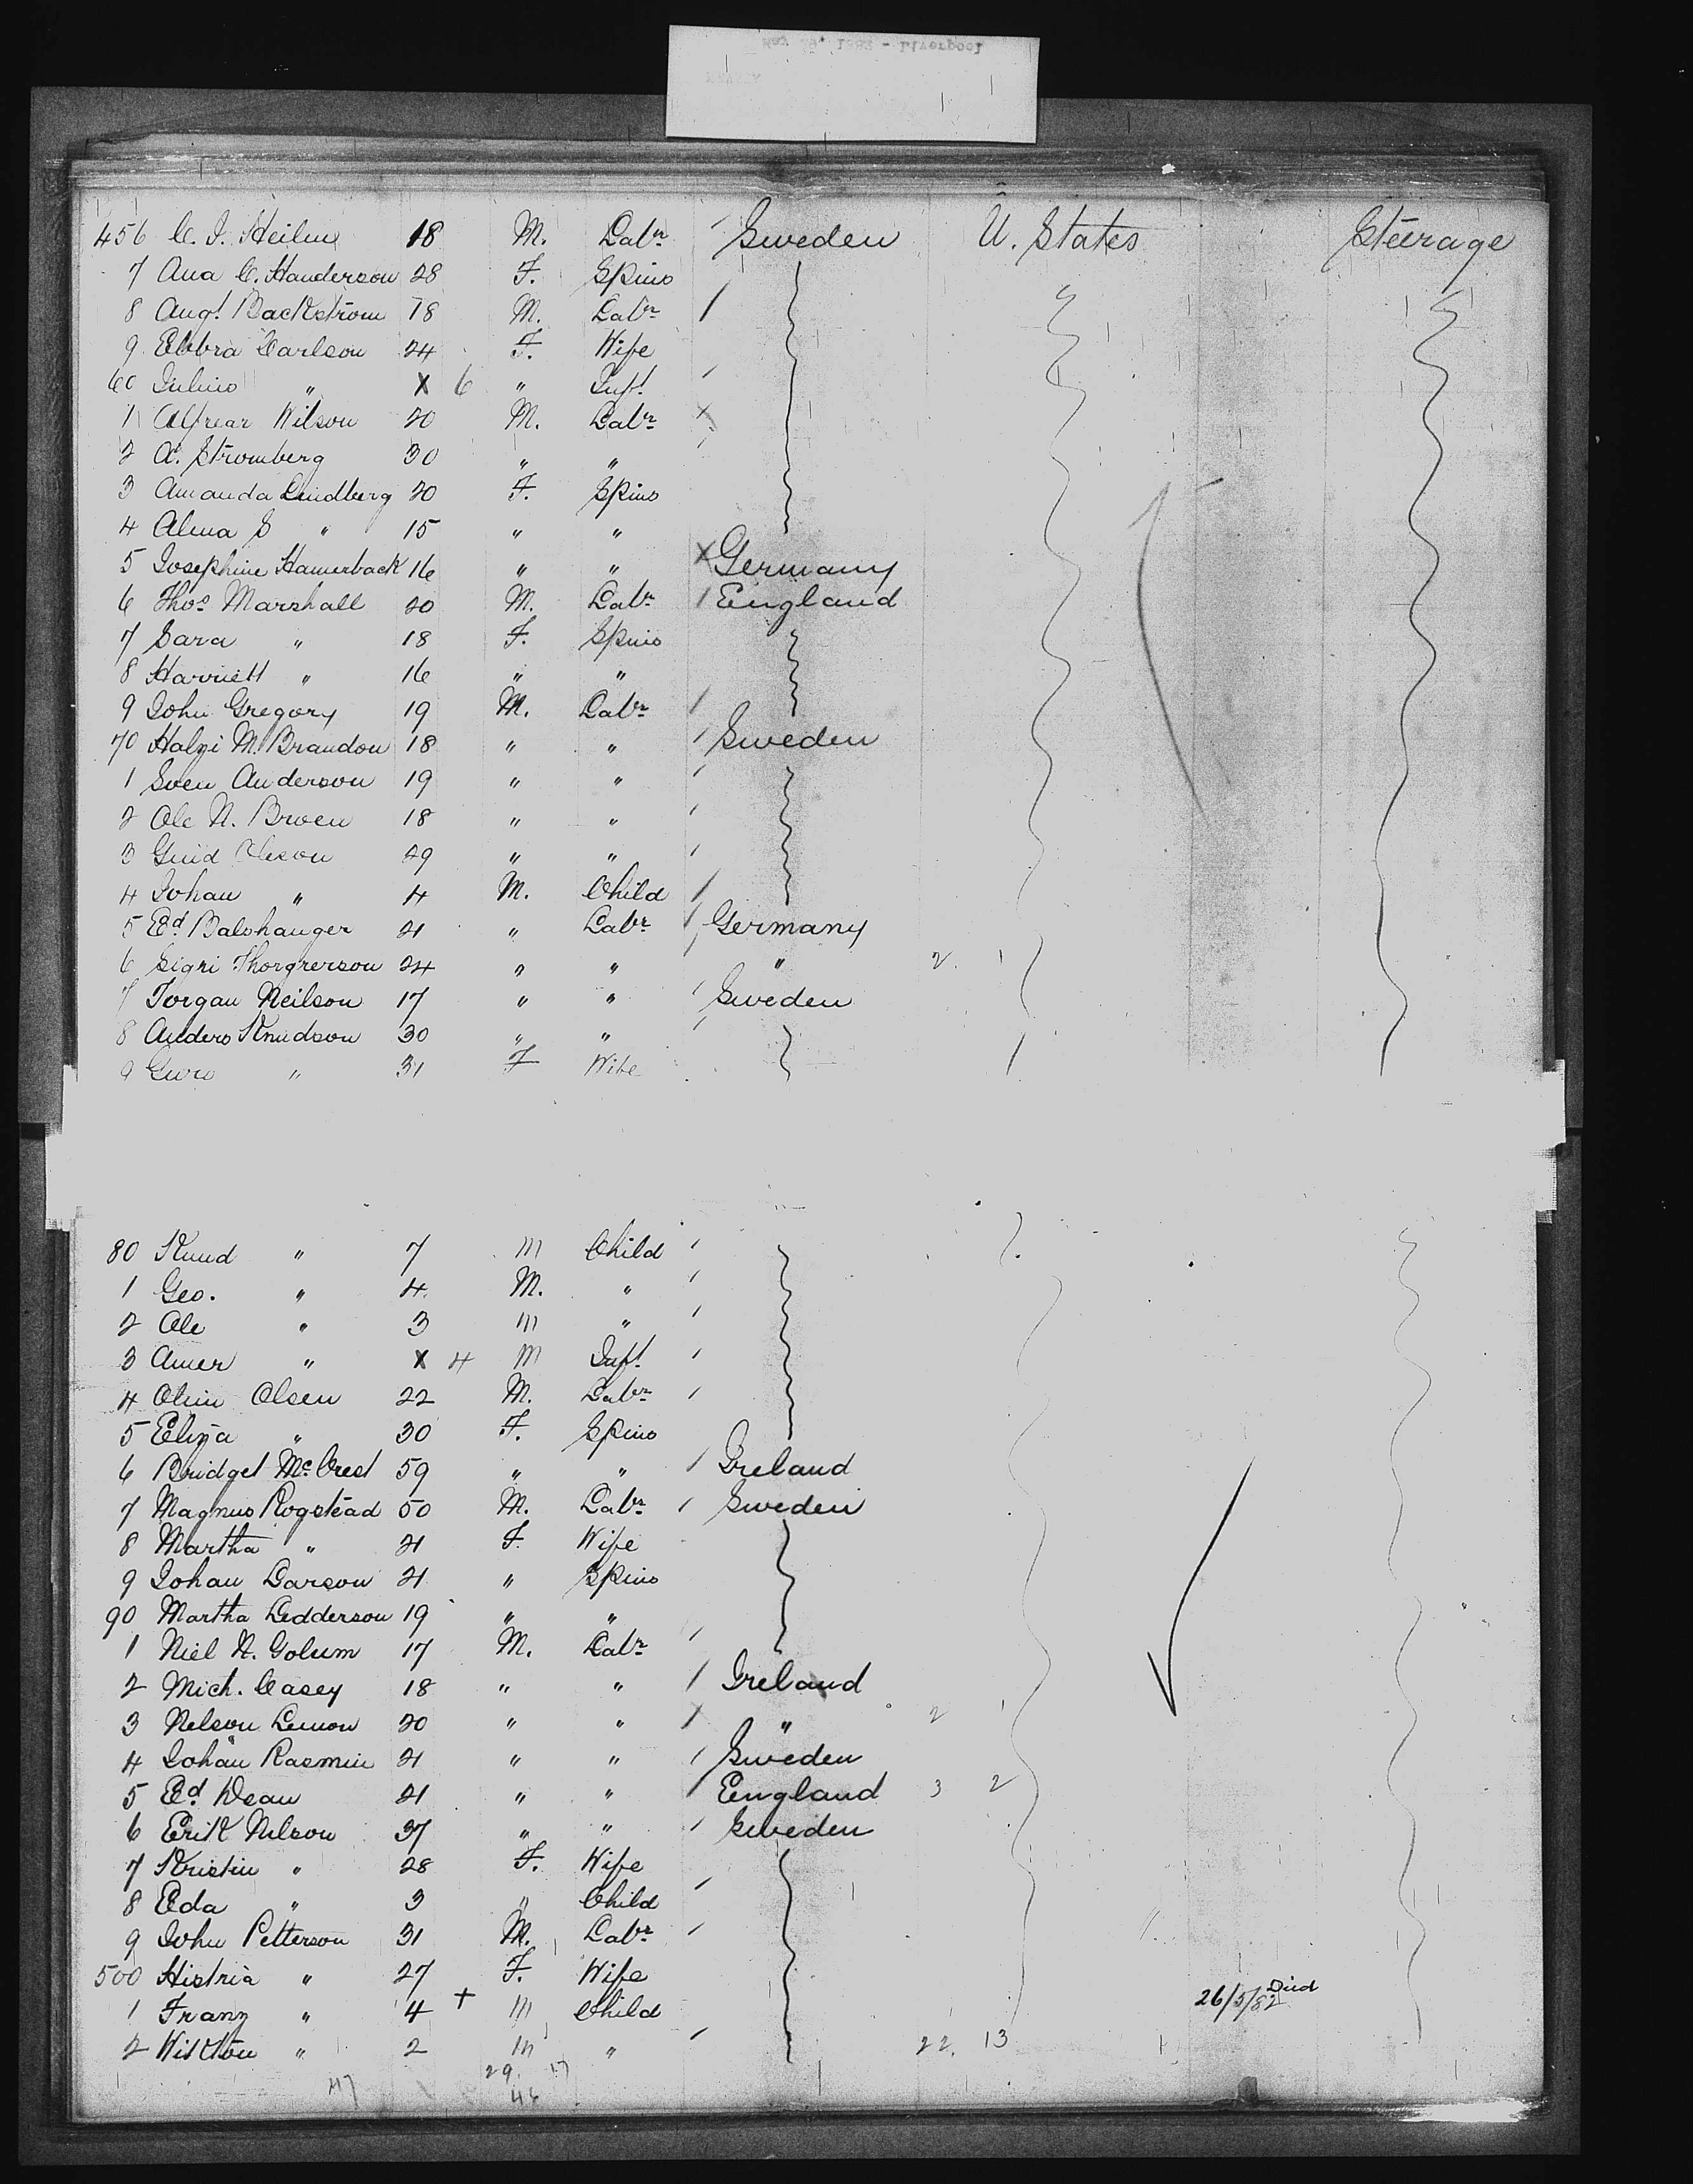 456 C. J. Heilm 18 M. Labr Sweden U. States Steerage
7 Ana C. Handerson 28 F. Spins
8 Augt Backstrom 18 M. Labr
9 Ebbra Carlson 24 F. Wife
60 Julius " X 6 " Inft
1 Alfrear Wilson 20 M. Labr
2 Ad. Stromberg 30 " "
3 Amanda Lindberg 20 F. Spins
4 Alma S " 15 " "
5 Josephine Hamerback 16 " " Germany
6 Thos Marshall 20 M. Labr England
7 Sara " 18 F. Spins
8 Harriett " 16 " "
9 John Gregory 19 M. Labr
70 Halgi M. Brandon 18 " " Sweden
1 Sven Anderson 19 " "
2 Ole N. Broen 18 " "
3 Guid Oleson 29 " "
4 Johan " 4 M. Child
5 Ed Balshanger 21 " Labr Germany
6 Sigri Thorgrerson 24 " " " 2 1
7 Torgan Neilson 17 " " Sweden
8 Anders Knudson 30 " "
9 Guro " 31 F Wife
80 Knud " 7 m Child
1 Geo. " 4 M. "
2 Ole " 3 m "
3 Amer " X 4 m Inft
4 Olin Olsen 22 M. Labr
5 Eliza " 30 F. Spins
6 Bridget Mc 59 " " Ireland
7 Magnus Rogstead 50 M. Labr Sweden
8 Martha " 21 F. Wife
9 Johan Larson 21 " Spins
90 Martha Ledderson 19 " "
1 Niel N. Golum 17 M. Labr
2 Mich. Casey 18 " " Ireland
3 Nelson Lemon 20 " " " 2 1
4 Johan Rasmin 21 " " Sweden
5 Ed Dean 21 " " England 3 2
6 Erik Nelson 37 " " Sweden
7 Kristin " 28 F. Wife
8 Eda " 3 " Child
9 John Petterson 31 M. Labr
500 Histria " 27 F. Wife
1 Franz " 4 + m Child 26/5/82 Died
2 " 2 m " 22. 13
29. 17
47 46